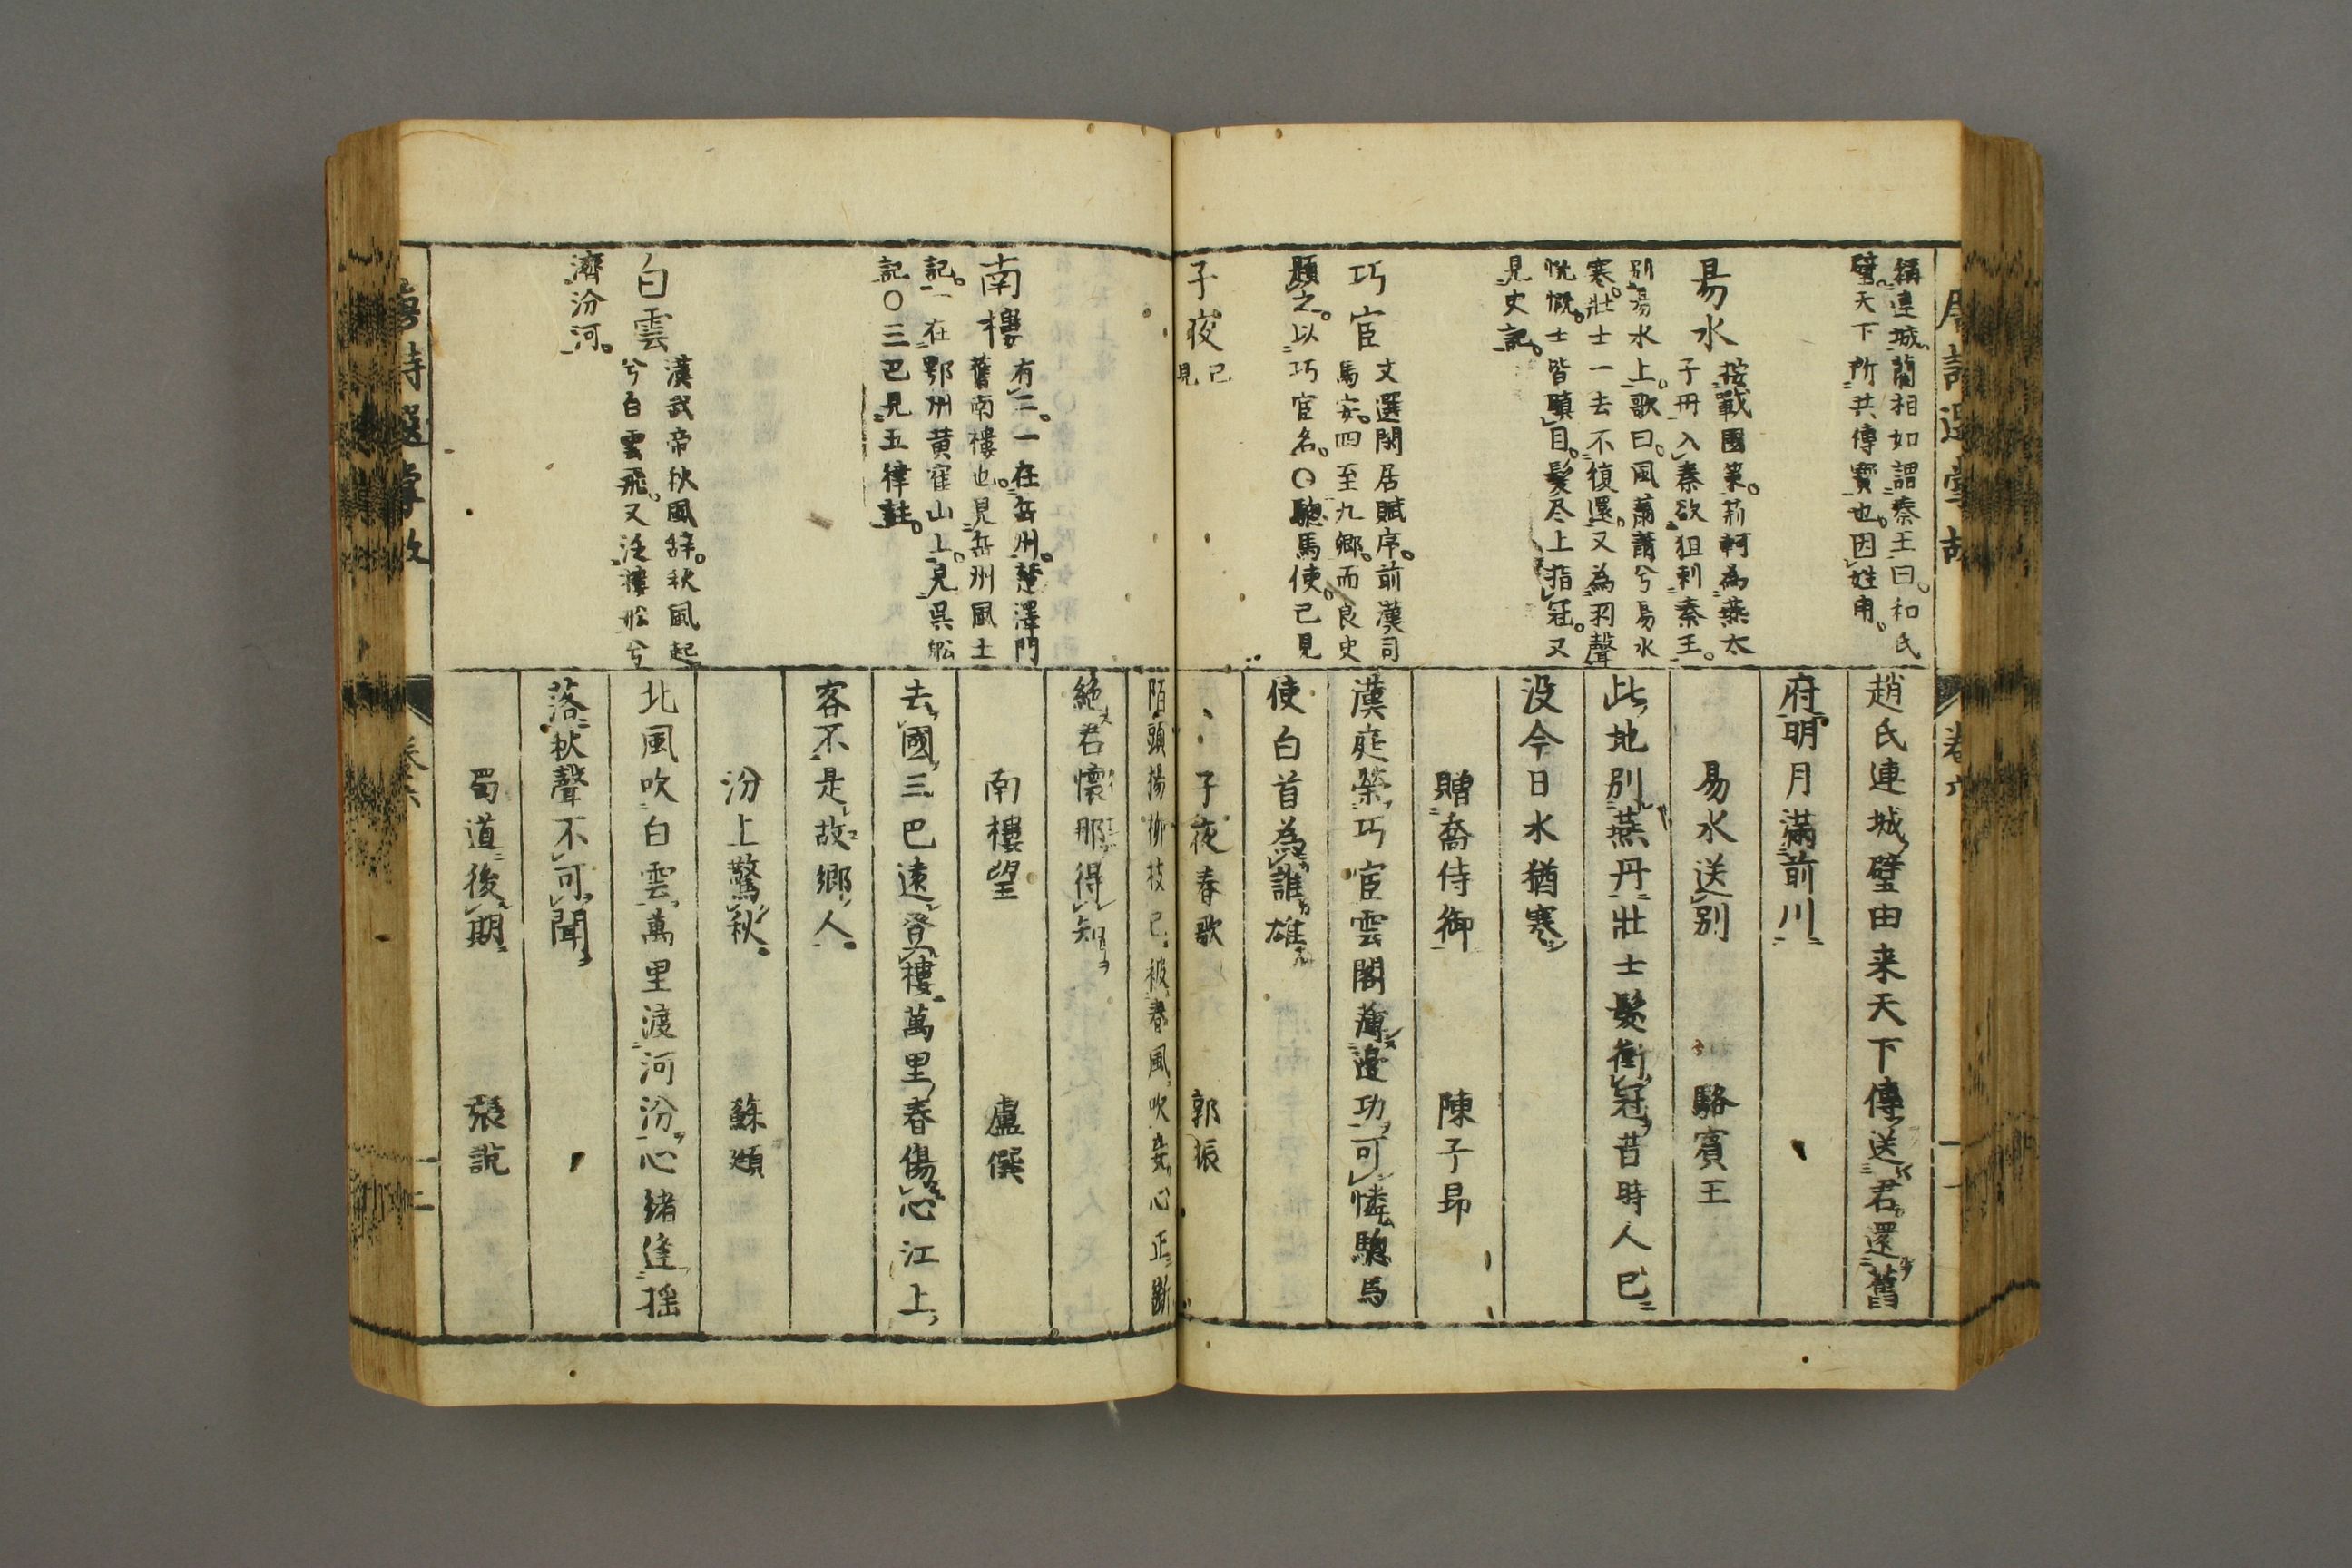 稱連城。藺相如謂秦王曰。和氏
璧。天下所共傳寶也。因姓用。
易水
按戰國策。荊軻為燕太
子丹入秦欲狙刺秦王。
別易水上。歌曰。風蕭蕭兮易水
寒。壯士一去不復還。又為羽聲
忼慨。士皆瞋目。髮尽上指冠。又
見史記。
巧宦
文選閑居賦序。前漢司
馬安。四至九卿。而良史
題之。以巧宦名。〇驄馬使。已見
子夜
已
見
趙氏連城璧由来天下傳送君還舊
府明月滿前川
易水送別 駱賓王
此地別燕丹壯士髮衝冠昔時人已
没今日水猶寒
贈喬侍御 陳子昂
漢庭榮巧宦雲閣薄邊功可憐驄馬
使白首為誰雄
子夜春歌 郭振
南樓
有二。一在岳州。楚澤門
舊南樓也。見岳州風土
記。一在鄂州黄寉山上。見呉舩
記〇三巴見五律註。
白雲
漢武帝秋風辞。秋風起
兮白雲飛。又泛樓舩兮
濟汾河。
陌頭揚柳枝已被春風吹妾心正斷
絶君懷那得知
南樓望 盧僎
去國三巴遠登樓萬里春傷心江上
客不是故鄉人
汾上驚秋 蘇頲
北風吹白雲萬里渡河汾心緒逢揺
落秋聲不可聞
蜀道後期 張說
唐詩選掌故
卷六